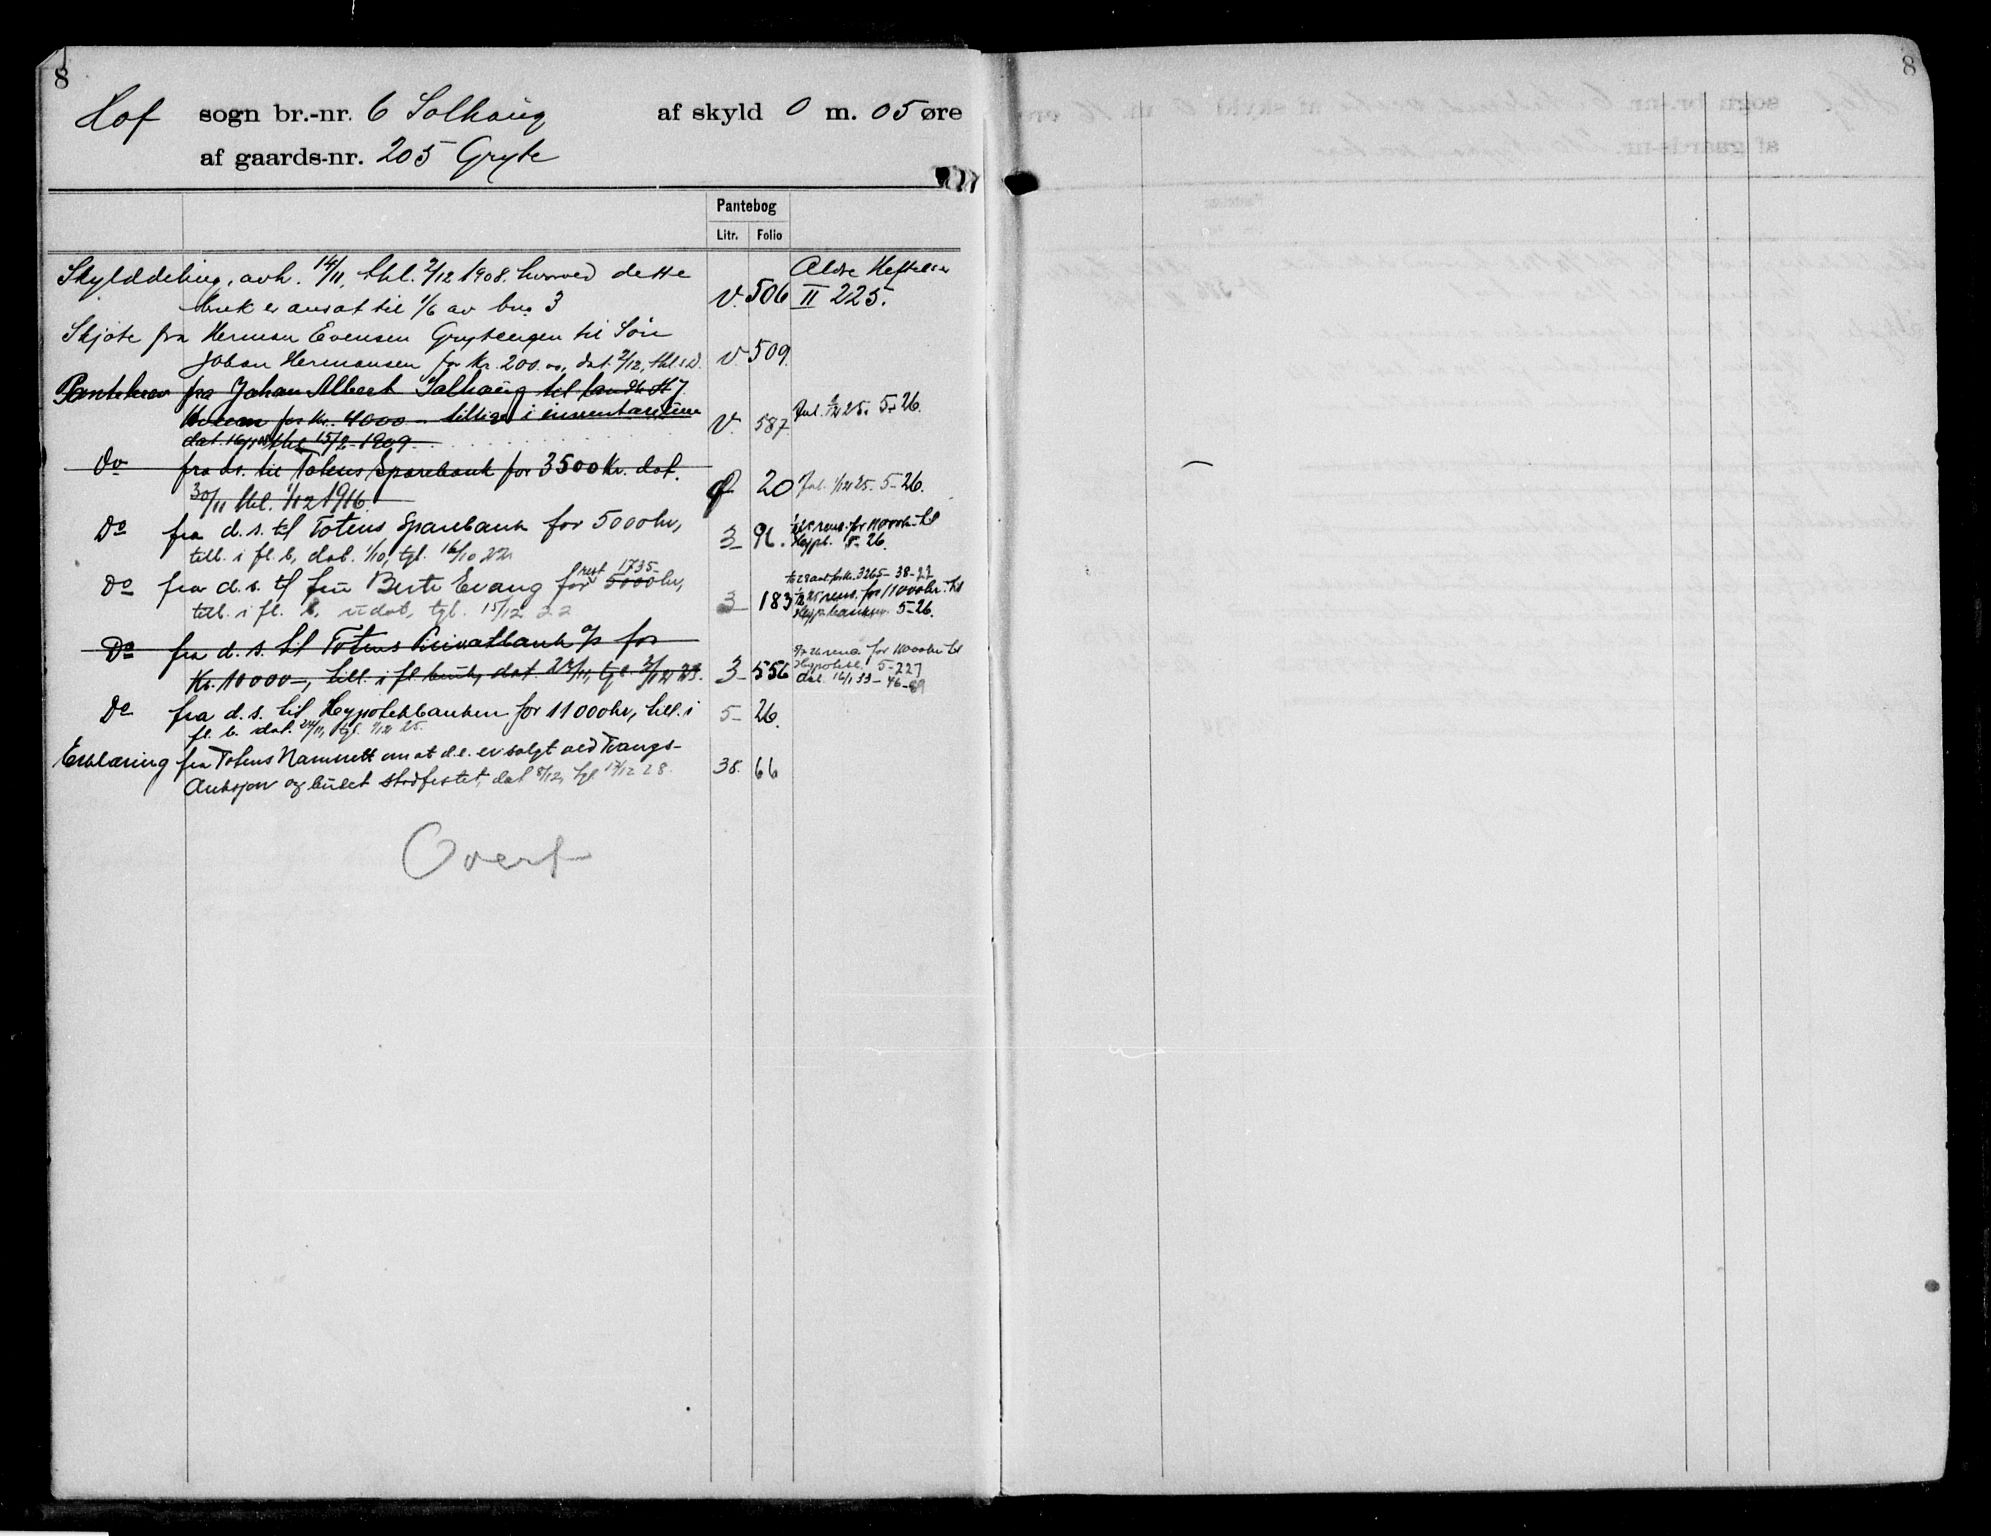 8
Hof sogn br.-nr. 6 Solhaug af skyld 0 m. 05 øre
af gaards-nr. 205 Gryte
Pantebog
Litr. Folio
Skylddeling, avh. 14/11, thl. 2/12 1908. hvorved dette Aldre Heftelser
bruk er ansat til 1/6 av bno 3 V. 506 II 225.
Skjøte fra Herman Evensen Gryteengen til Søn
Johan Hermansen for Kr. 200.00, dat. 2/12, thl. s.D. V. 509.
Pantebrev fra Johan Albert Solhaug til H J
for Kr. 4000 - tillige i inventarium V. 587 Jvl. 1/12 25. 5-26.
dat. thl. 15/2 1909.
Do fra ds. til Totens Sparebank for 3500 Kr. dat.
30/11 thl. 1/12 1916. Ø 20 Jvl. 1/12 25. 5-26.
Do fra d. s. til Totens Sparebank for 5000 kr, 3- 91. rens. for 11000 kr. til
till. i fl. b, dat. 1/10, tgl. 16/10 22. Hypb. 5-26.
rest 1735-
Do fra d. s. til fru Berte Evang for 5000 kr, 3- 183 28 avl. for kr. 3265-38-22
till. i fl. b, dat, tgl. 15/12 22 25 rens. for 11000 kr. til
Hypbanken 5-26.
Do fra d. s. til Totens Privatbank A/S for rens for 11000 kr til
Kr. 10000-, till. i fl. bruk, dat 24/11, tgl. 3/12 23. 3- 556 Hypotekb. 5-227
dal. 16/1 33-46-69
Do fra d. s. til Hypotekbanken for 11000 kr, till. i 5- 26.
fl. b. dat. 24/11, tgl. 1/12 25.
Erklæring fra Totens Namsrett om at d.e. er solgt ved Tvangs-
Auksjon og budet stadfestet, dat 8/12, tgl 17/12 28. 38. 66
Overf
8